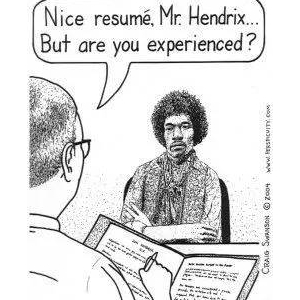 Nice resumé, Mr. Hendrix...
But are you experienced?
www.perspicuity.com
Craig Swanson © 2004